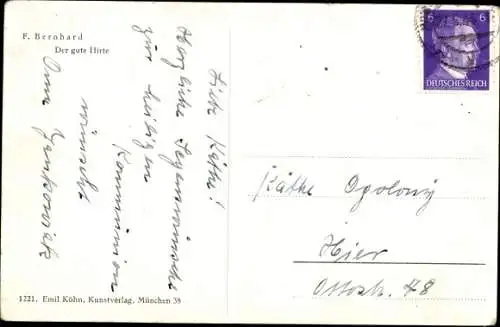 F. Bernhard
Der gute Hirte
Liebe Käthe!
Herzliche Segenswünsche
zur heiligen
Kommunion
wünscht
Anna
1221. Emil Köhn, Kunstverlag, München 38
6 6
DEUTSCHES REICH
Käthe Opolony
Hier
Ottostr. 48